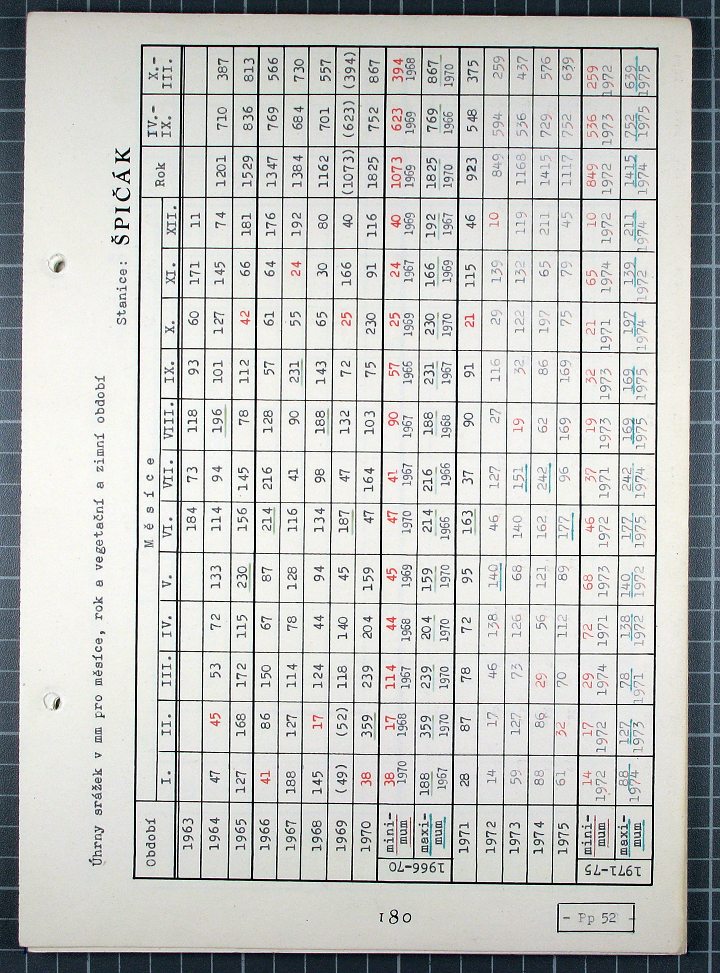 Úhrny srážek v mm pro měsíce, rok a vegetační a zimní období
Stanice: ŠPIČÁK
Období Měsíce Rok IV.-IX. X.-III.
I. II. III. IV. V. VI. VII. VIII. IX. X. XI. XII.
1963 184 73 118 93 60 171 11
1964 47 45 53 72 133 114 94 196 101 127 145 74 1201 710 387
1965 127 168 172 115 230 156 145 78 112 42 66 181 1529 836 813
1966 41 86 150 67 87 214 216 128 57 61 64 176 1347 769 566
1967 188 127 114 78 128 116 41 90 231 55 24 192 1384 684 730
1968 145 17 124 44 94 134 98 188 143 65 30 80 1162 701 557
1969 (49) (52) 118 140 45 187 47 132 72 25 166 40 (1073) (623) (394)
1970 38 359 239 204 159 47 164 103 75 230 91 116 1825 752 867
1966-70
mini-mum 38 17 114 44 45 47 41 90 57 25 24 40 1073 623 394
1970 1968 1967 1968 1969 1970 1967 1967 1966 1969 1967 1969 1969 1969 1968
maxi-mum 188 359 239 204 159 214 216 188 231 230 166 192 1825 769 867
1967 1970 1970 1970 1970 1966 1966 1968 1967 1970 1969 1967 1970 1966 1970
1971 28 87 78 72 95 163 37 90 91 21 115 46 923 548 375
1972 14 17 46 138 140 46 127 27 116 29 139 10 849 594 259
1973 59 127 73 126 68 140 151 19 32 122 132 119 1168 536 437
1974 88 86 29 56 121 162 242 62 86 197 65 211 1415 729 576
1975 61 32 70 112 89 177 96 169 169 75 79 45 1117 752 639
1971-75
mini-mum 14 17 29 72 68 46 37 19 32 21 65 10 849 536 259
1972 1972 1974 1971 1973 1972 1971 1973 1973 1971 1974 1972 1972 1973 1972
maxi-mum 88 127 78 138 140 177 242 169 169 197 139 211 1415 752 639
1974 1973 1971 1972 1972 1975 1974 1975 1975 1974 1972 1974 1974 1975 1975
180
- Pp 52 -